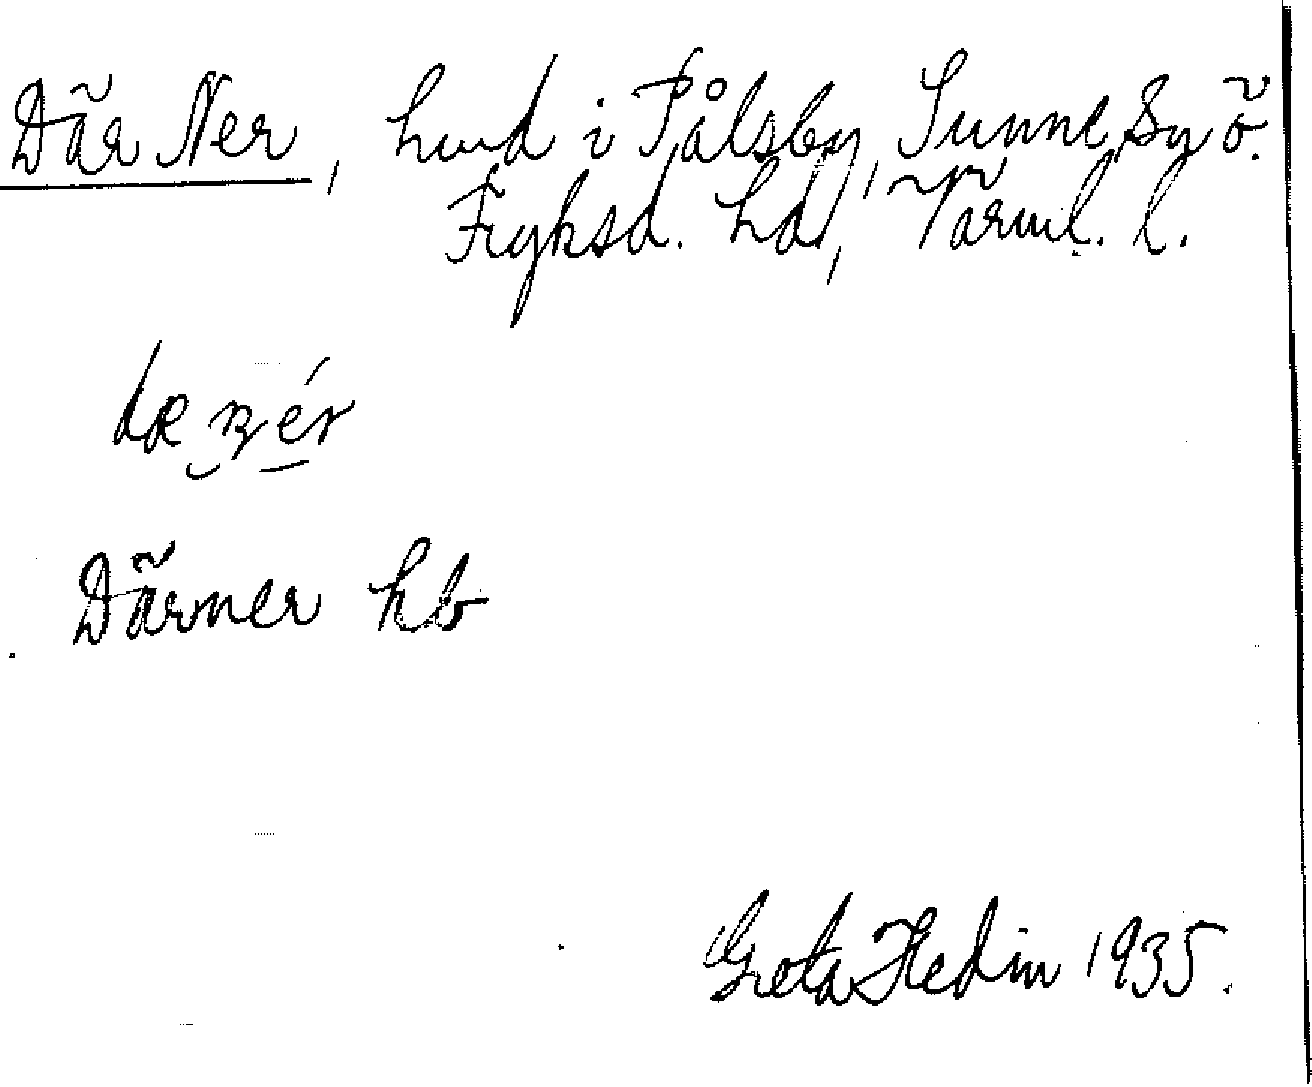 Där Ner, hmd i Pålsby, Sunne, Sy ö.
Fryksd. hd, Värml. l.
Därner hb
Greta Hedin 1935.